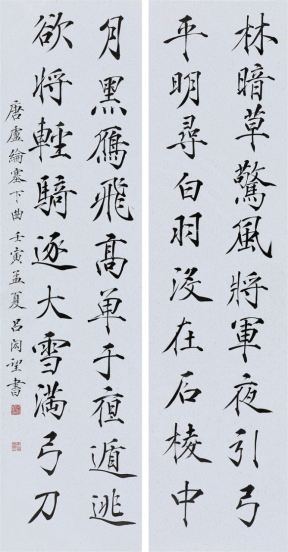 林暗草驚風將軍夜引弓
平明尋白羽没在石棱中
月黑鴈飛高单于夜遁逃
欲將輕騎逐大雪滿弓刀
唐盧綸塞下曲 壬寅孟夏 吕望書